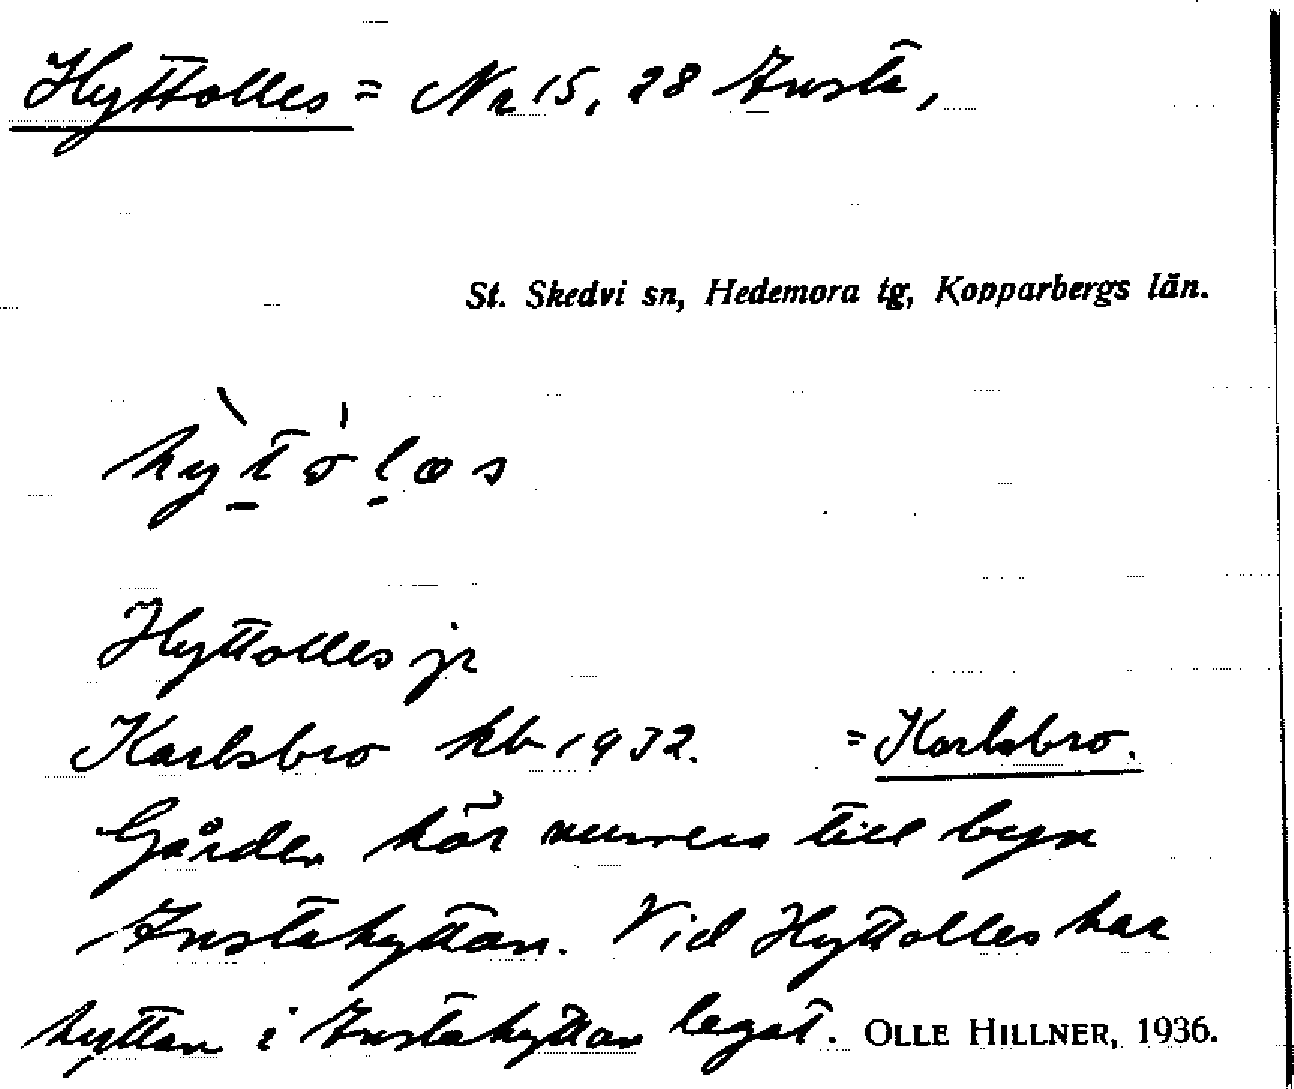 Hyttolles = Nr 15, 28 Insta,
St. Skedvi sn, Hedemora tg, Kopparbergs län.
Hyttolles jr
Karlsbro kb 1932. = Karlsbro.
Gården hör numera till byn
Instahyttan. Vid Hyttolles har
hyttan i Instahyttan legat. OLLE HILLNER, 1936.